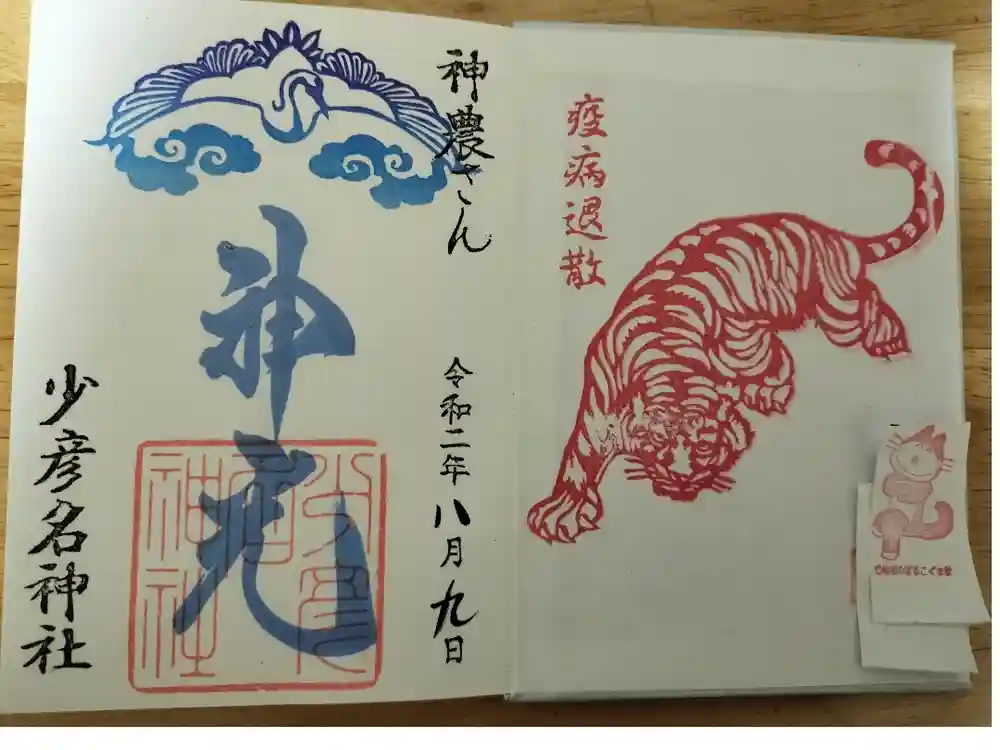 疫病退散
神農さん
令和二年八月九日
神光
少彦名神社
少彦名神社